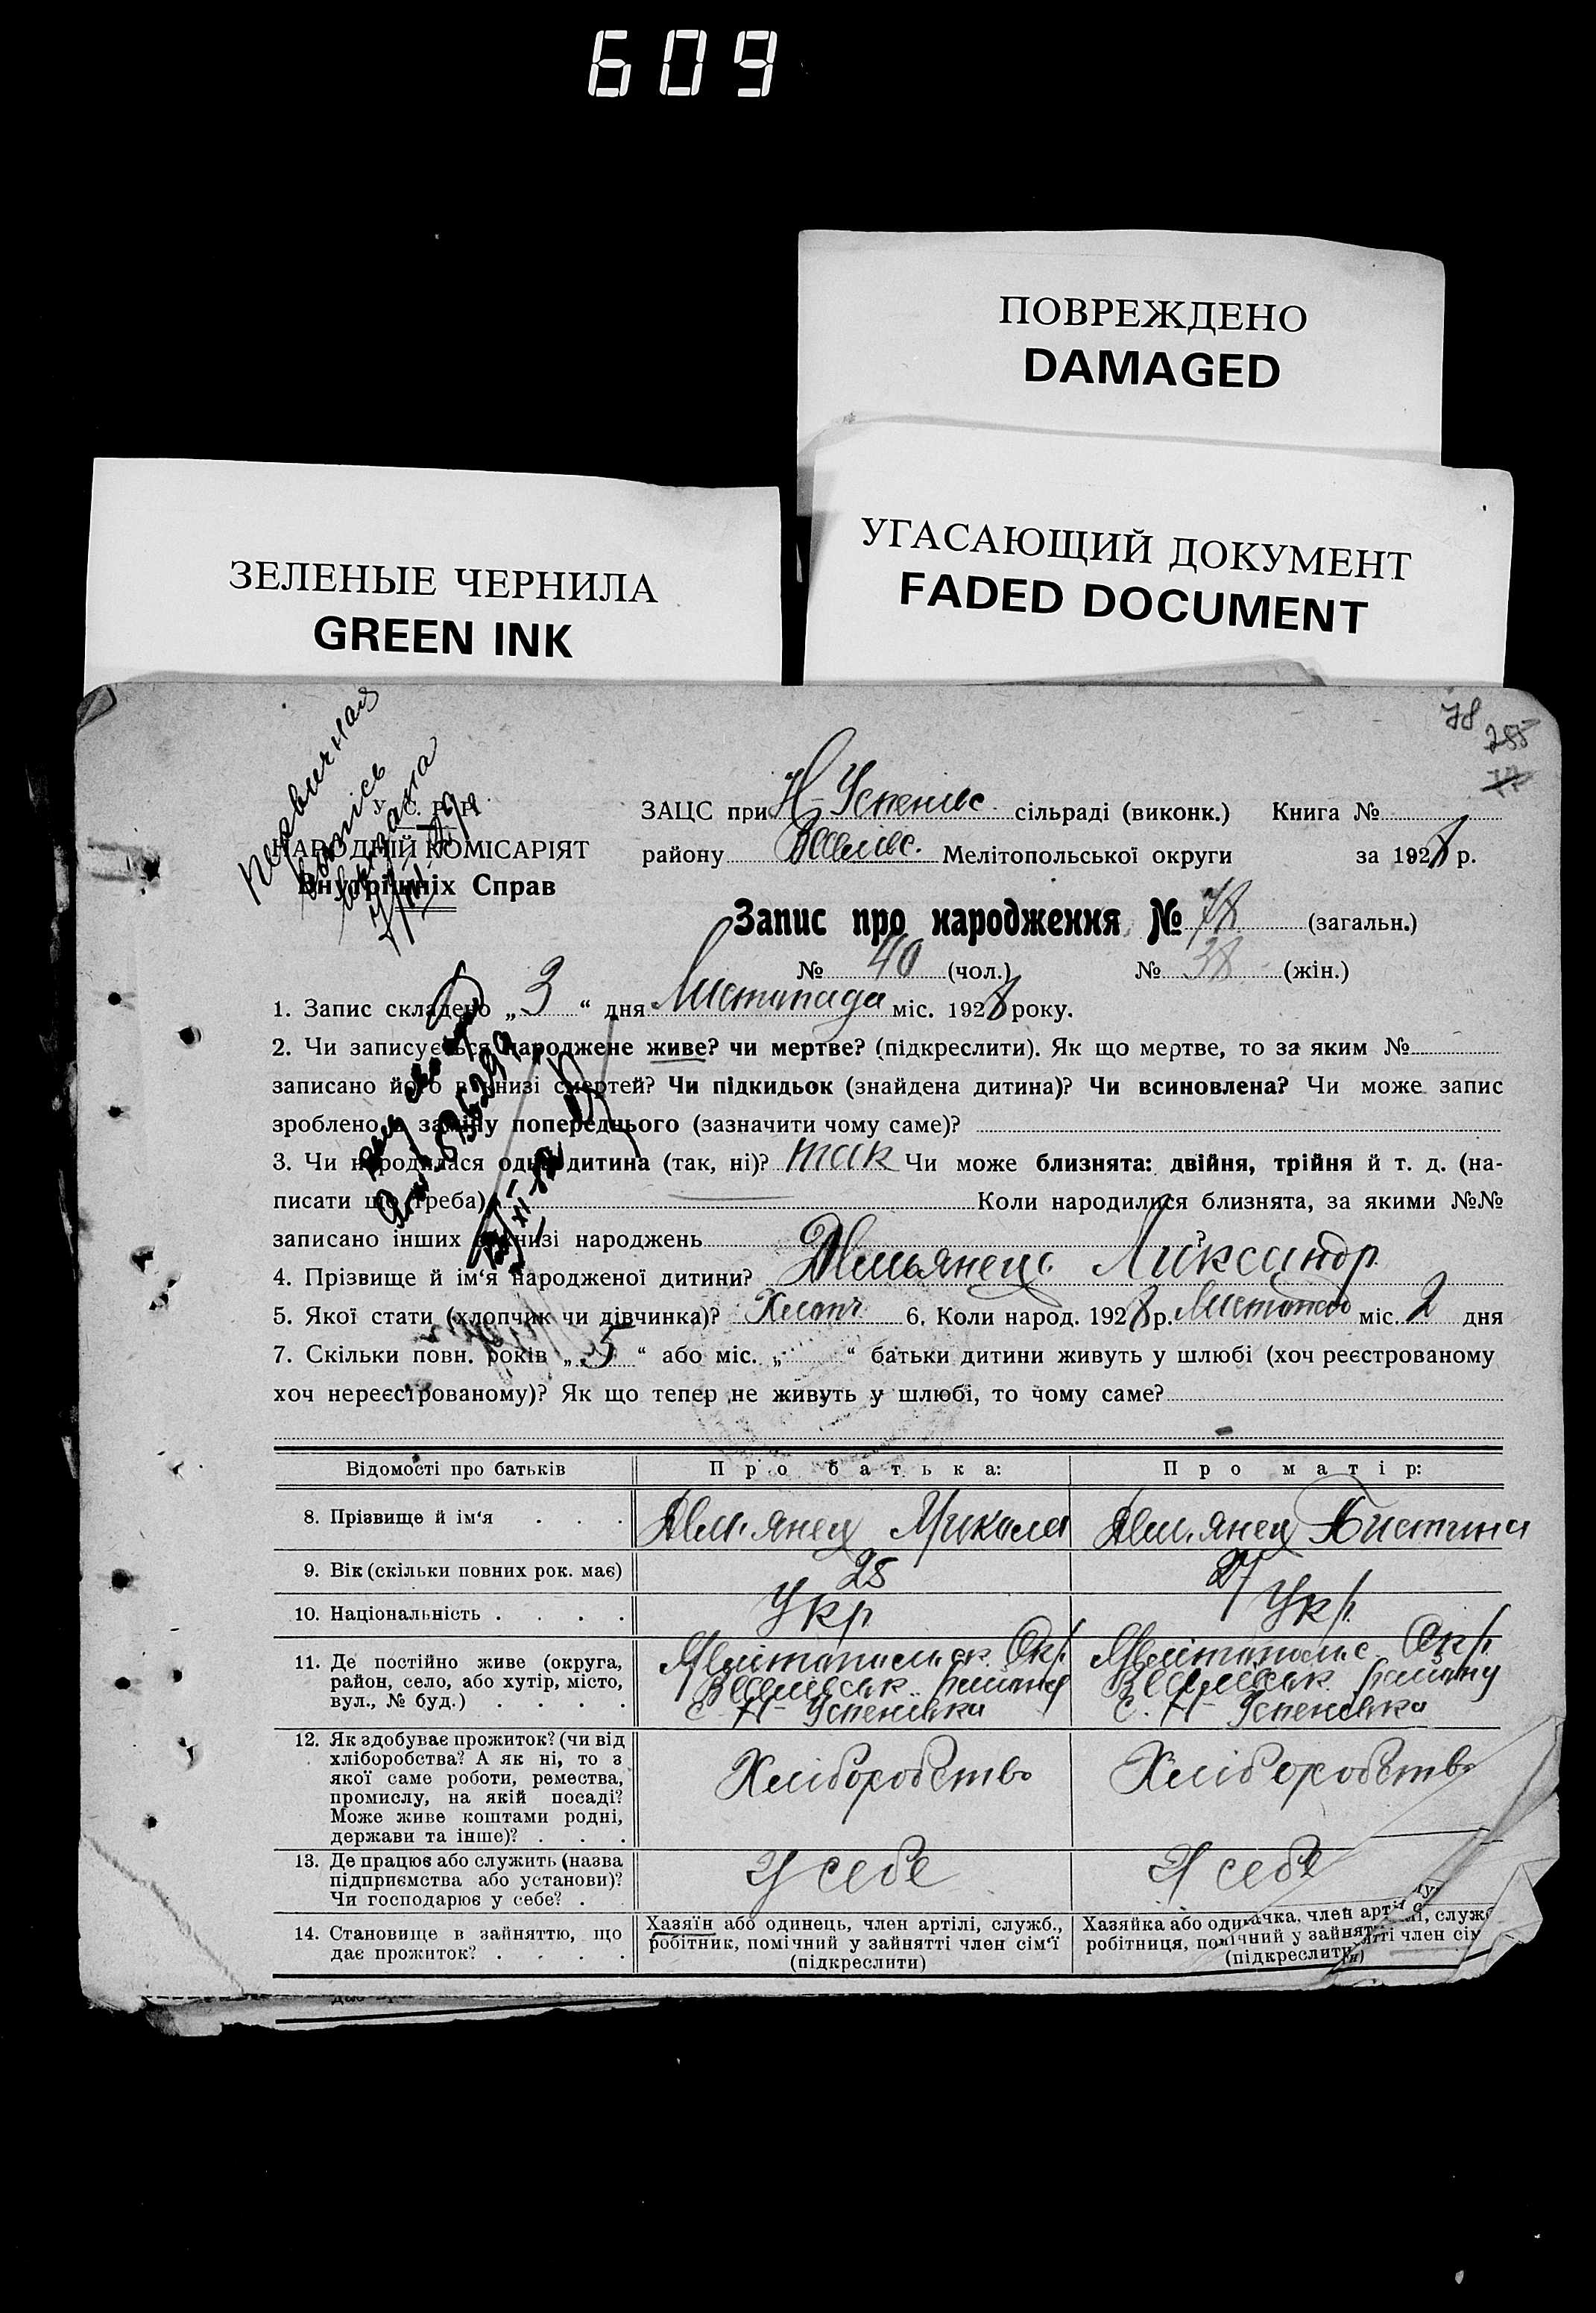 609
ПОВРЕЖДЕНО
DAMAGED
УГАСАЮЩИЙ ДОКУМЕНТ
FADED DOCUMENT
ЗЕЛЕНЫЕ ЧЕРНИЛА
GREEN INK
78
285
77
Первичная
запись
У. С. Р. Р.
НАРОДНІЙ КОМІСАРІЯТ
Внутрішніх Справ
ЗАЦС при Н-Успенівс. сільраді (виконк.) Книга №
району Веселівс. Мелітопольської округи за 1928 р.
Запис про народження № 78 (загальн.)
№ 40 (чол.) № 38 (жін.)
1. Запис складено „ 3 “ дня Листопада міс. 1928 року.
2. Чи записується народжене живе? чи мертве? (підкреслити). Як що мертве, то за яким №
записано його в книзі смертей? Чи підкидьок (знайдена дитина)? Чи всиновлена? Чи може запис
зроблено в заміну попереднього (зазначити чому саме)?
3. Чи народилася одна дитина (так, ні)? так Чи може близнята: двійня, трійня й т. д. (на-
писати що треба) Коли народилися близнята, за якими №№
записано інших в книзі народжень ?
4. Прізвище й ім‘я народженої дитини? Александр
5. Якої стати (хлопчик чи дівчинка)? Хлопч 6. Коли народ. 1928 р. Листопад міс. 2 дня
7. Скільки повн. років „ 5 “ або міс. „ “ батьки дитини живуть у шлюбі (хоч реєстрованому
хоч нереєстрованому)? Як що тепер не живуть у шлюбі, то чому саме?
Відомості про батьків Про батька: Про матір:
8. Прізвище й ім‘я Дем'янец Микола Дем'янец
9. Вік (скільки повних рок. має) 28 27
10. Національність Укр. Укр.
11. Де постійно живе (округа,
район, село, або хутір, місто,
вул., № буд.)
Мелітопільск. Окр.
Веселівськ. району
с. Н-Успенівка
Мелітопольс. Окр.
Веселівськ. району
с. Н-Успенівка
12. Як здобуває прожиток? (чи від
хліборобства? А як ні, то з
якої саме роботи, ремества,
промислу, на якій посаді?
Може живе коштами родні,
держави та інше)?
Хліборобство
Хліборобство
13. Де працює або служить (назва
підприємства або установи)?
Чи господарює у себе?
У себе
У себе
14. Становище в зайняттю, що
дає прожиток?
Хазяїн або одинець, член артілі, служб.,
робітник, помічний у зайнятті член сім‘ї
(підкреслити)
Хазяйка або одиначка, член артілі, служб
робітниця, помічний у зайнятті член сім
(підкреслити)